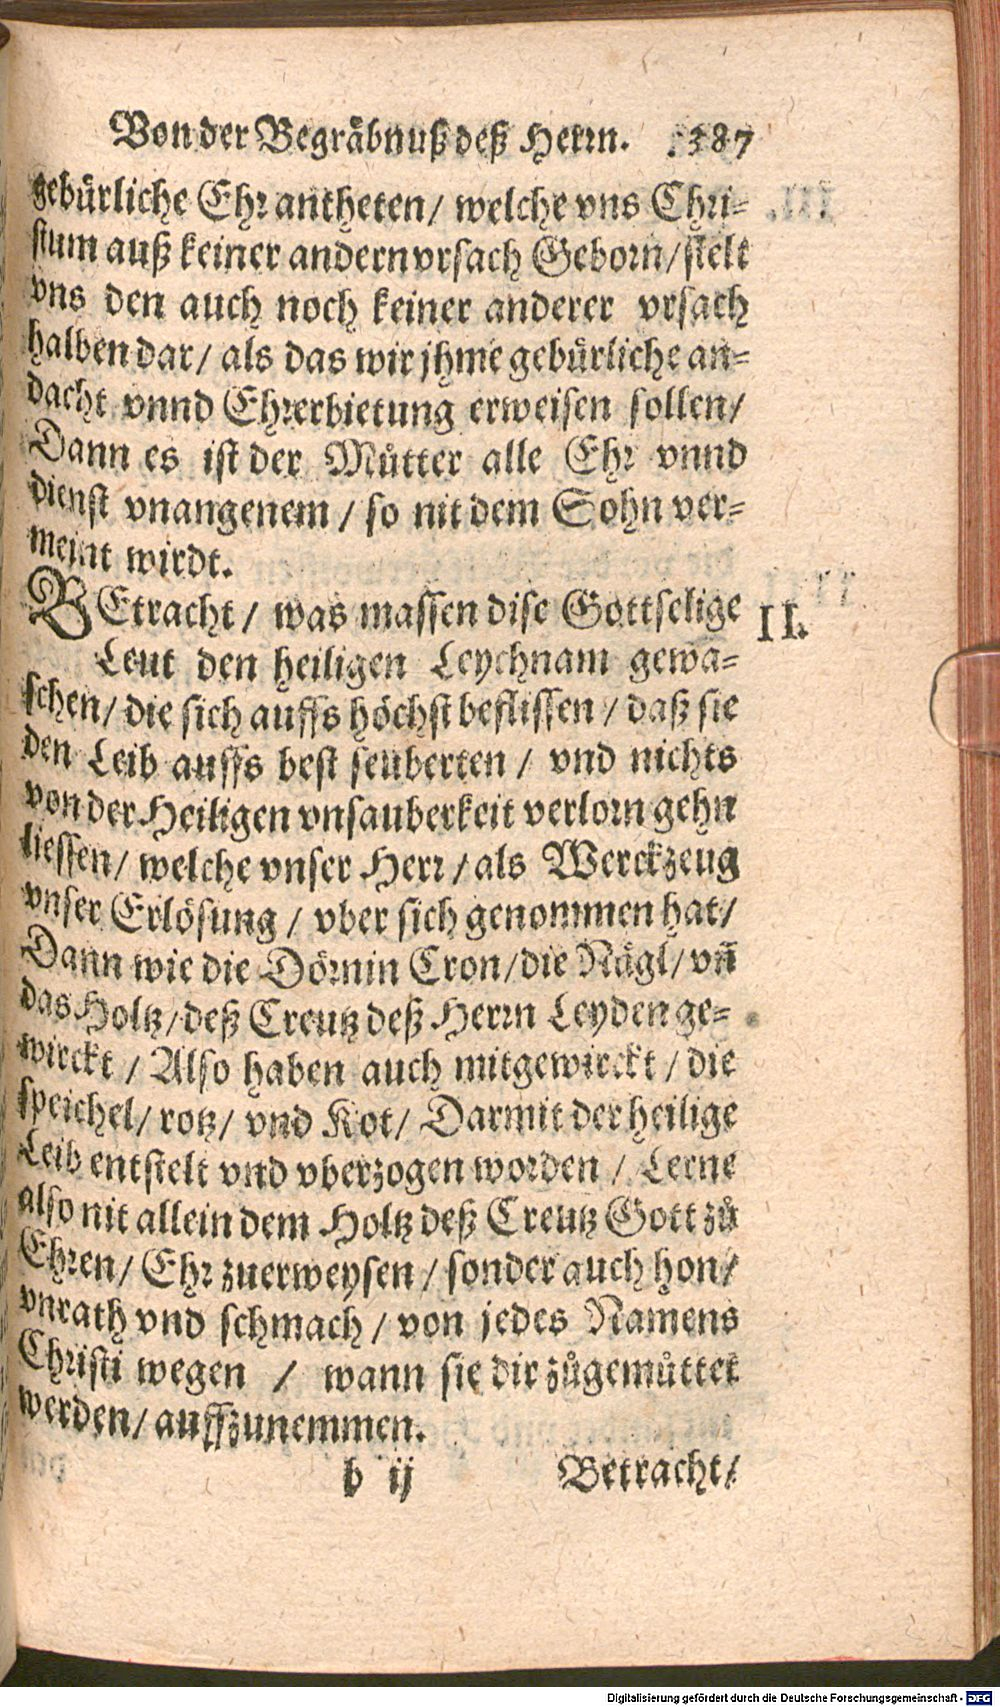 Von der Begräbnuß deß Herrn. 387
gebürliche Ehr antheten/ welche vns Chri-
stum auß keiner andern vrsach Geborn/ stelt
vns den auch noch keiner anderer vrsach
halben dar/ als das wir jhme gebürliche an-
dacht vnnd Ehrerbietung erweisen sollen/
Dann es ist der Můtter alle Ehr vnnd
dienst vnangenem/ so nit dem Sohn ver-
meint wirdt.
BEtracht/ was massen dise Gottselige
II.
Leut den heiligen Leychnam gewa-
schen/ die sich auffs höchst beflissen/ daß sie
den Leib auffs best seuberten/ vnd nichts
von der Heiligen vnsauberkeit verlorn gehn
liessen/ welche vnser Herr/ als Werckzeug
vnser Erlösung/ vber sich genommen hat/
Dann wie die Dörnin Cron/ die Nägl/ vñ
das Holtz/ deß Creutz deß Herrn Leyden ge-
wirckt/ Also haben auch mitgewirckt/ die
speichel/ rotz/ vnd Kot/ Darmit der heilige
Leib entstelt vnd vberzogen worden/ Lerne
also nit allein dem Holtz deß Creutz Gott zů
Ehren/ Ehr zuerweysen/ sonder auch hon/
vnrath vnd schmach/ von jedes Namens
Christi wegen / wann sie dir zůgemůttet
werden/ auffzunemmen.
b ij Betracht/
Digitalisierung gefördert durch die Deutsche Forschungsgemeinschaft - DFG